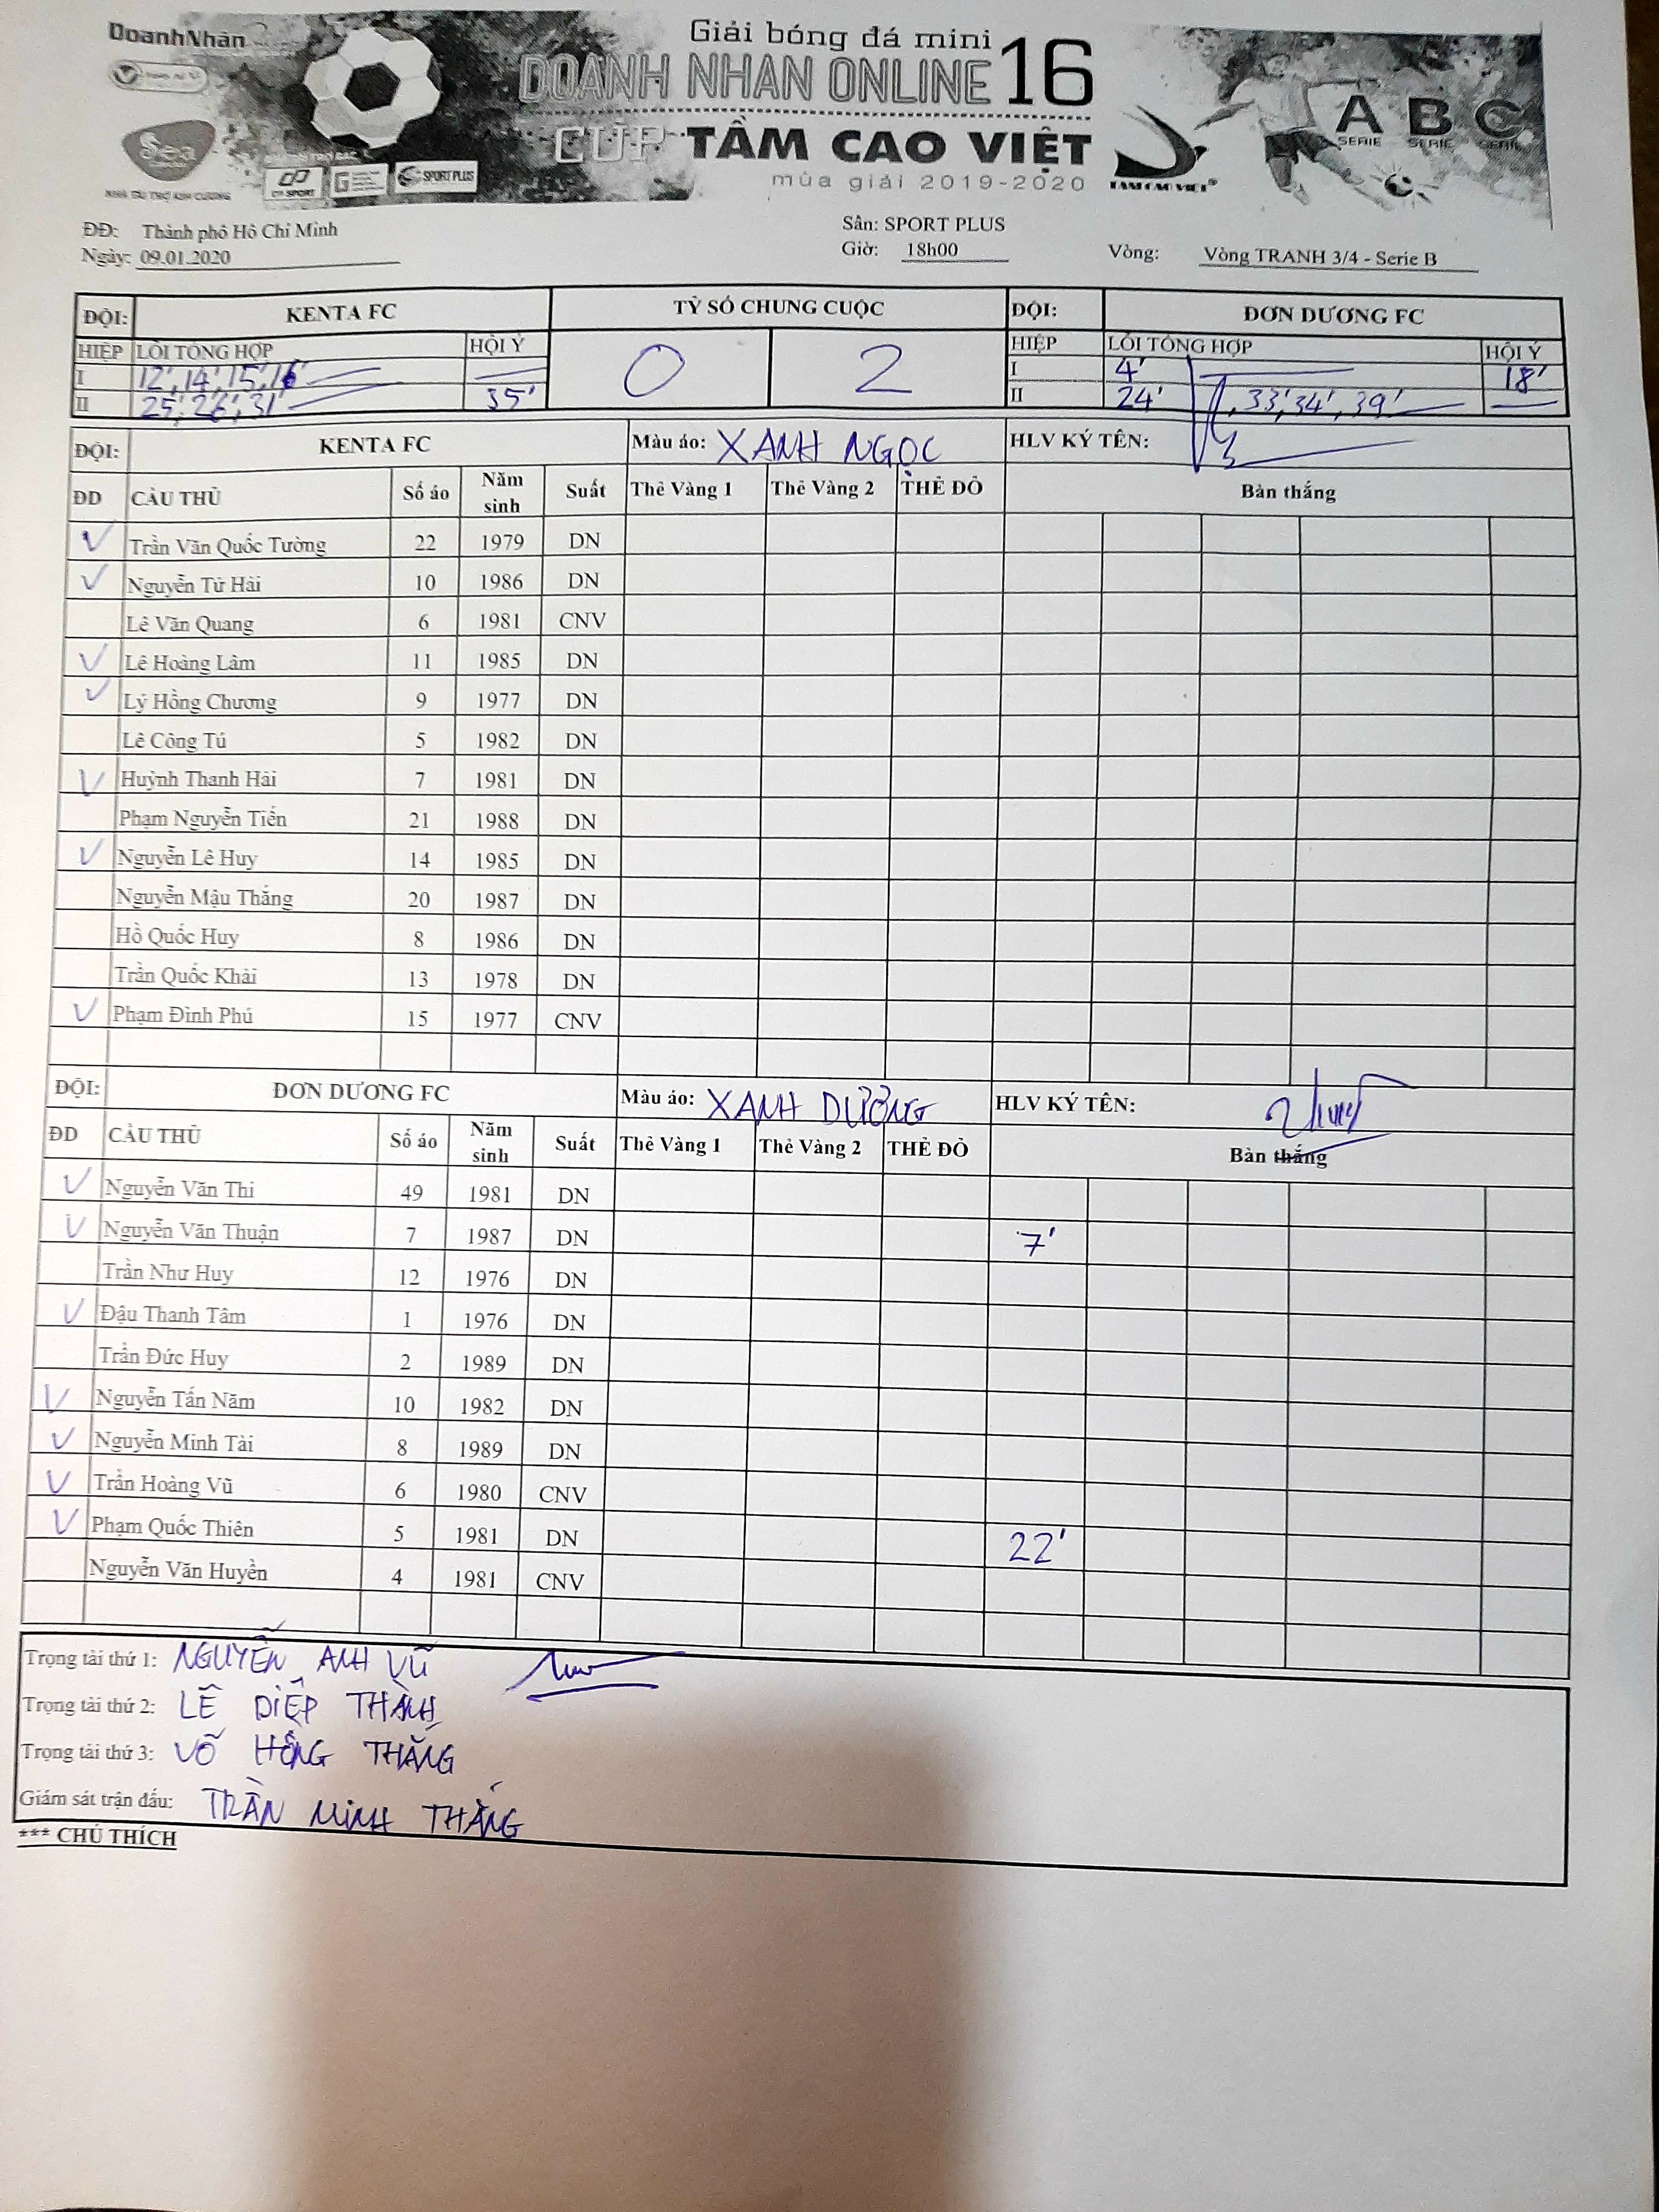 DoanhNhân
Giải bóng đá mini
DOANH NHAN ONLINE 16
CUP TẦM CAO VIỆT
mùa giải 2019-2020
Sea
NHÀ TÀI TRỢ KIM CƯƠNG
SPORT
SPORT PLUS
TAM CAO VIET®
A B C
SERIE SERIE SERIE
ĐĐ: Thành phố Hồ Chí Minh Sân: SPORT PLUS
Ngày: 09.01.2020 Giờ: 18h00 Vòng: Vòng TRANH 3/4 - Serie B
ĐỘI: KENTA FC TỶ SỐ CHUNG CUỘC ĐỘI: ĐƠN DƯƠNG FC
HIỆP LỖI TỔNG HỢP HỘI Ý 0 2 HIỆP LỖI TỔNG HỢP HỘI Ý
I 12', 14', 15', 16' I 4' 18'
II 25', 26', 31' 35' II 24' , 33', 34', 39'
ĐỘI: KENTA FC Màu áo: XANH NGỌC HLV KÝ TÊN:
ĐD CẦU THỦ Số áo Năm sinh Suất Thẻ Vàng 1 Thẻ Vàng 2 THẺ ĐỎ Bàn thắng
V Trần Văn Quốc Tường 22 1979 DN
V Nguyễn Tứ Hải 10 1986 DN
Lê Văn Quang 6 1981 CNV
V Lê Hoàng Lâm 11 1985 DN
V Lý Hồng Chương 9 1977 DN
Lê Công Tú 5 1982 DN
V Huỳnh Thanh Hải 7 1981 DN
Phạm Nguyễn Tiến 21 1988 DN
V Nguyễn Lê Huy 14 1985 DN
Nguyễn Mậu Thắng 20 1987 DN
Hồ Quốc Huy 8 1986 DN
Trần Quốc Khải 13 1978 DN
V Phạm Đình Phú 15 1977 CNV
ĐỘI: ĐƠN DƯƠNG FC Màu áo: XANH DƯƠNG HLV KÝ TÊN:
ĐD CẦU THỦ Số áo Năm sinh Suất Thẻ Vàng 1 Thẻ Vàng 2 THẺ ĐỎ Bàn thắng
V Nguyễn Văn Thi 49 1981 DN
V Nguyễn Văn Thuận 7 1987 DN 7'
Trần Như Huy 12 1976 DN
V Đậu Thanh Tâm 1 1976 DN
Trần Đức Huy 2 1989 DN
V Nguyễn Tấn Năm 10 1982 DN
V Nguyễn Minh Tài 8 1989 DN
V Trần Hoàng Vũ 6 1980 CNV
V Phạm Quốc Thiên 5 1981 DN 22'
Nguyễn Văn Huyền 4 1981 CNV
Trọng tài thứ 1: NGUYỄN ANH VŨ
Trọng tài thứ 2: LÊ DIỆP THÀNH
Trọng tài thứ 3: VÕ HỒNG THẮNG
Giám sát trận đấu: TRẦN MINH THẮNG
*** CHÚ THÍCH